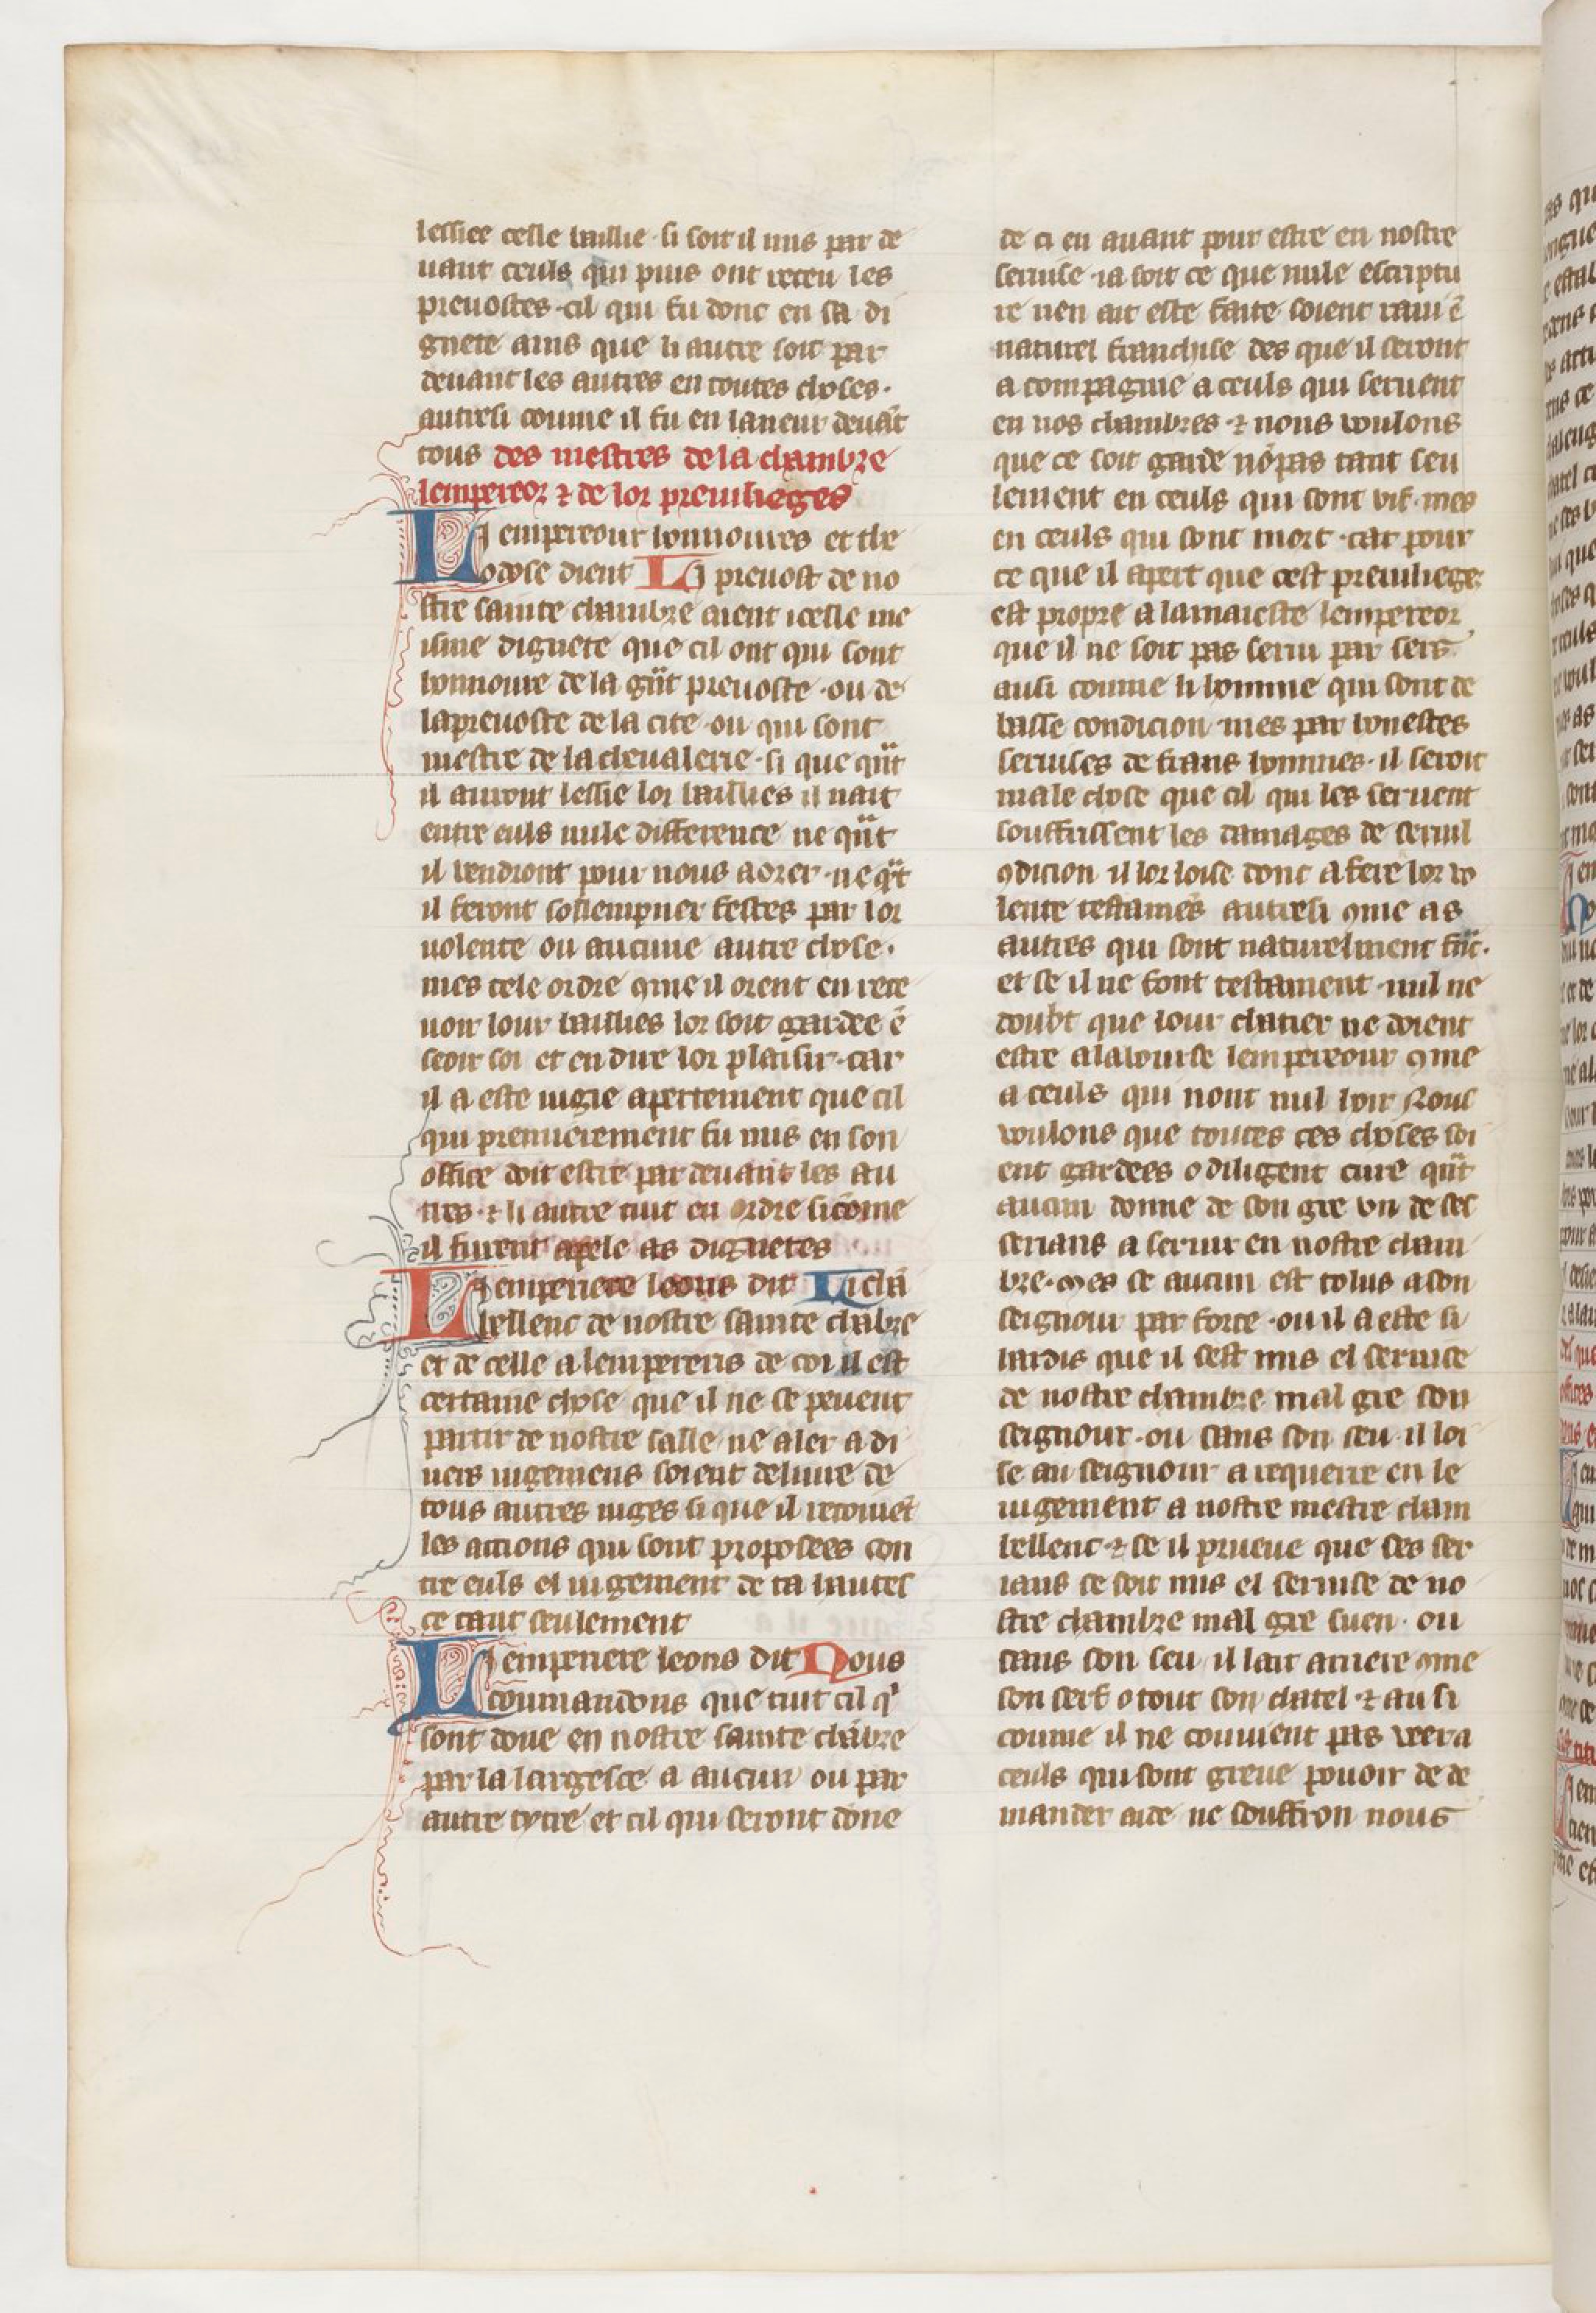 lessiee celle baillie · si soit il mis par de
uant ceuls qui puis ont receu les
preuostes · cil qui fu donc en sa di
gnete ains que li autre soit par
deuant les autres en toutes choses ·
autresi comme il fu en laneur deuāt
tous des mestres de la chambre
lempereor ⁊ de lor preuilieges
Li empereour honnoires et the
odose dient Li preuost de no
stre sainte chambre aient icelle me
isme dignete que cil ont qui sont
honnoure de la grāt preuoste · ou de
la preuoste de la cite ou qui sont
mestre de la cheualerie · si que quāt
il auront lessie lor baillies il nait
entre euls nule difference ne quāt
il vendront pour nous aorer · ne quāt
il feront sollempner festes par lor
uolente ou aucune autre chose ·
mes cele ordre 9me il orent en rece
uoir lour baillies lor soit gardee ē
seoir soi et en dire lor plaisir · car
il a este iugie apertement que cil
qui premierement fu mis en son
office doit estre par deuant les au
tres · ⁊ li autre tuit en ordre si cōme
il furent apele as dignetes
Li emperiere leons dit Li chā
bellenc de nostre sainte chābre
et de celle a lempereris de coi il est
certaine chose que il ne se peuent
partir de nostre salle ne aler a di
uers iugemens soient deliure de
tous autres iuges si que il recoiuēt
les actions qui sont proposees con
tre euls el iugement de ta hautes
ce tant seulement
Li emperiere leons dit Nous
coumandons que tuit cil qⁱ
sont done en nostre sainte chābre
par la largesce a aucun ou par
autre tytre et cil qui seront done
de ci en auant pour estre en nostre
seruise · ia soit ce que nule escriptu
re nen ait este faite soient raui ē
naturel franchise des que il seront
a compagnie a ceuls qui seruent
en nos chambres · ⁊ nous voulons
que ce soit garde nō pas tant seu
lement en ceuls qui sont vif · mes
en ceuls qui sont mort · car pour
ce que il apert que cest preuiliege
est propre a la maieste lempereor
que il ne soit pas serui par sers
ausi comme li homme qui sont de
basse condicion · mes par honestes
seruises de frans hommes · il seroit
male chose que cil qui les seruent
souffrissent les damages de seruil
9dicion il lor loise donc a fere lor vo
lente testamēs autresi 9me as
autres qui sont naturelment frāc ·
et se il ne font testament · nul ne
doubt que lour chatier ne doient
estre a la bourse lempereour 9me
a ceuls qui nont nul hoir Nous
voulons que toutes ces choses soi
ent gardees o diligent cure quāt
aucun donne de son gre vn de ses
serians a seruir en nostre cham
bre · Mes se aucun est tolus a son
seignour par force · ou il a este si
hardis que il sest mis el seruice
de nostre chambre mal gre son
seignour · ou sans son seu · il loi
se au seignour a requerre en le
iugement a nostre mestre cham
bellenc · ⁊ se il prueue que ses ser
ians se soit mis el seruise de no
stre chambre mal gre suen · ou
sans son seu il lait arriere 9me
son serf o tout son chatel · ⁊ au si
comme il ne conuient pas veer a
ceuls qui sont greue pouoir de de
mander aide ne souffron nous